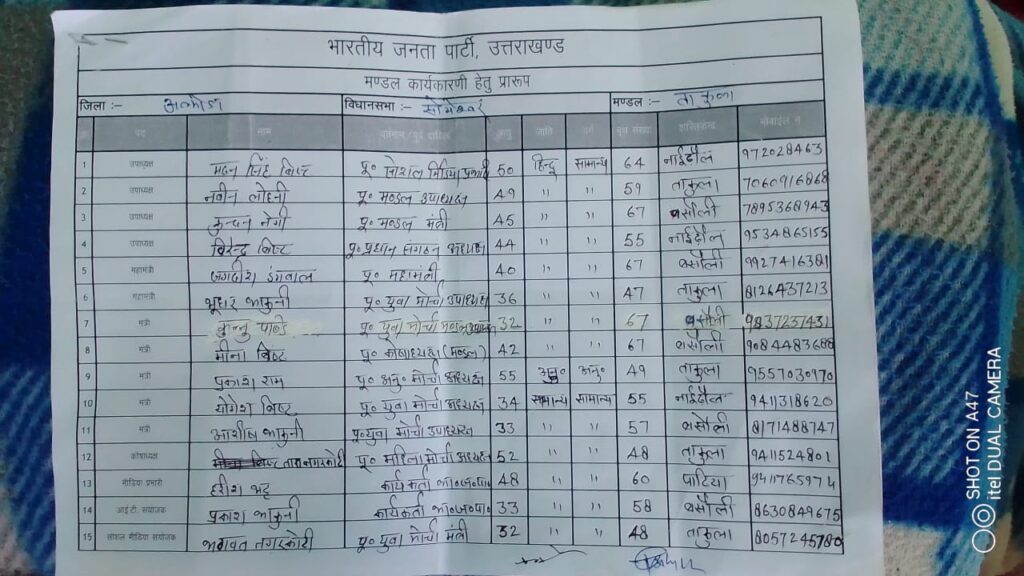 भारतीय जनता पार्टी, उत्तराखण्ड
मण्डल कार्यकारणी हेतु प्रारूप
जिला :- अल्मोड़ा विधानसभा :- सोमेश्वर मण्डल :- ताकुला
पद नाम वर्तमान/पूर्व दायित्व आयु जाति वर्ग बूथ संख्या शक्तिकेन्द्र मोबाईल न
1 उपाध्यक्ष सिंह बिष्ट पू० सोशल मिडिया प्रभारी 50 हिन्दू सामान्य 64 नाईढौल 972028463
2 उपाध्यक्ष नवीन लोहनी पू० मण्डल उपाध्यक्ष 49 " " 59 ताकुला 7060916868
3 उपाध्यक्ष कुन्दन नेगी पू० मण्डल मंत्री 45 " " 67 बसौली 7895368943
4 उपाध्यक्ष बिरेन्द्र बिष्ट पू० प्रधान संगठन अध्यक्ष 44 " " 55 नाईढौल 9534865155
5 महामंत्री जगदीश डंगवाल पू० महामंत्री 40 " " 67 बसौली 9927416381
6 महामंत्री भूधर भाकुनी पू० युवा मोर्चा उपाध्यक्ष 36 " " 47 ताकुला 8126437213
7 मंत्री पाण्डे पू० युवा मोर्चा मण्डल उपाध्यक्ष 32 " " 67 बसौली 9837237431
8 मंत्री मीना बिष्ट पू० कोषाध्यक्ष (मण्डल) 42 " " 67 बसौली 9084483688
9 मंत्री प्रकाश राम पू० अनु० मोर्चा अध्यक्ष 55 अनु० अनु० 49 ताकुला 9557030970
10 मंत्री योगेश बिष्ट पू० युवा मोर्चा अध्यक्ष 34 सामान्य सामान्य 55 नाईढौल 9411318620
11 मंत्री आशीष भाकुनी पू० युवा मोर्चा उपाध्यक्ष 33 " " 57 बसौली 8171488747
12 कोषाध्यक्ष तारा नगरकोटी पू० महिला मोर्चा अध्यक्ष 52 " " 48 ताकुला 9411524801
13 मीडिया प्रभारी हरीश भट्ट कार्यकर्ता भा०ज०पा० 48 " " 60 पाटिया 9411765974
14 आई.टी. संयोजक प्रकाश भाकुनी कार्यकर्ता भा०ज०पा० 33 " " 58 बसौली 8630849675
15 सोशल मीडिया संयोजक भगवत नगरकोटी पू० युवा मोर्चा मंत्री 32 " " 48 ताकुला 8057245780
SHOT ON A47
itel DUAL CAMERA